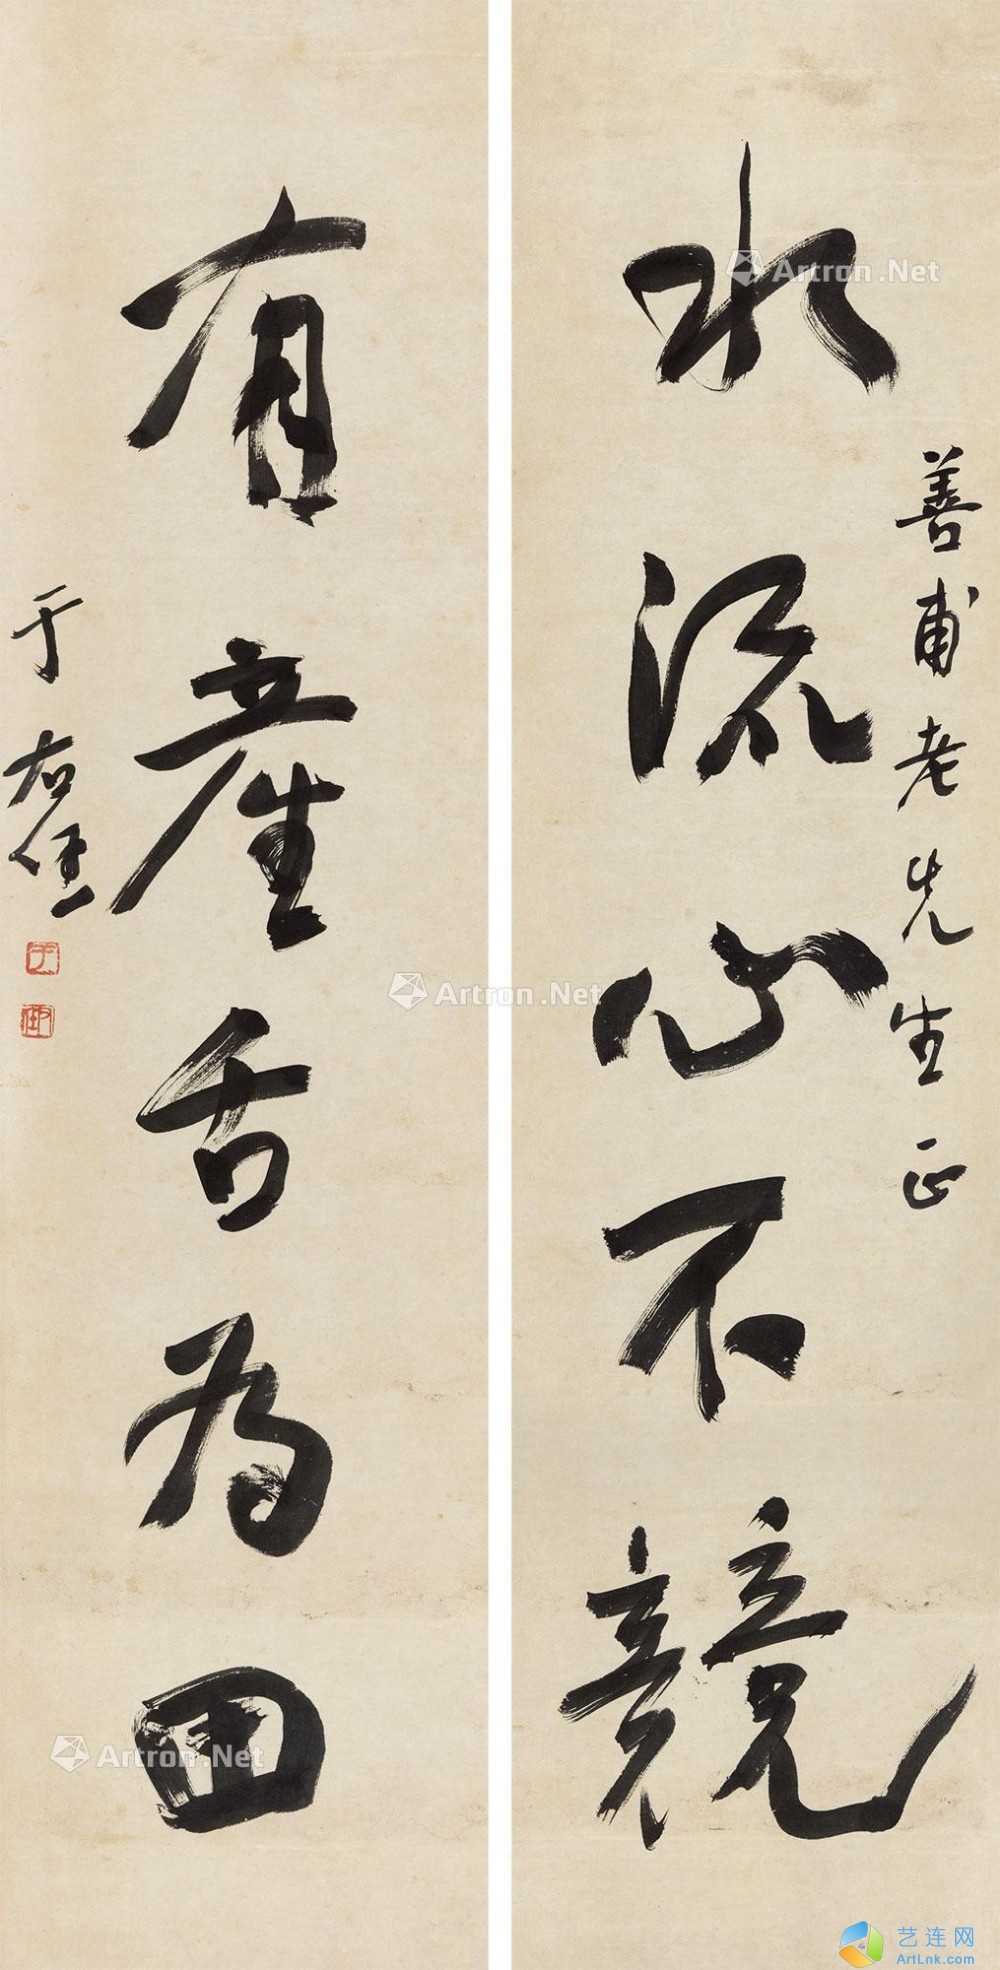 水流心不競
善甫老先生正
有產舌為田
于右任
Artron.Net
Artron.Net
Artron.Net
艺连网
ArtLnk.com